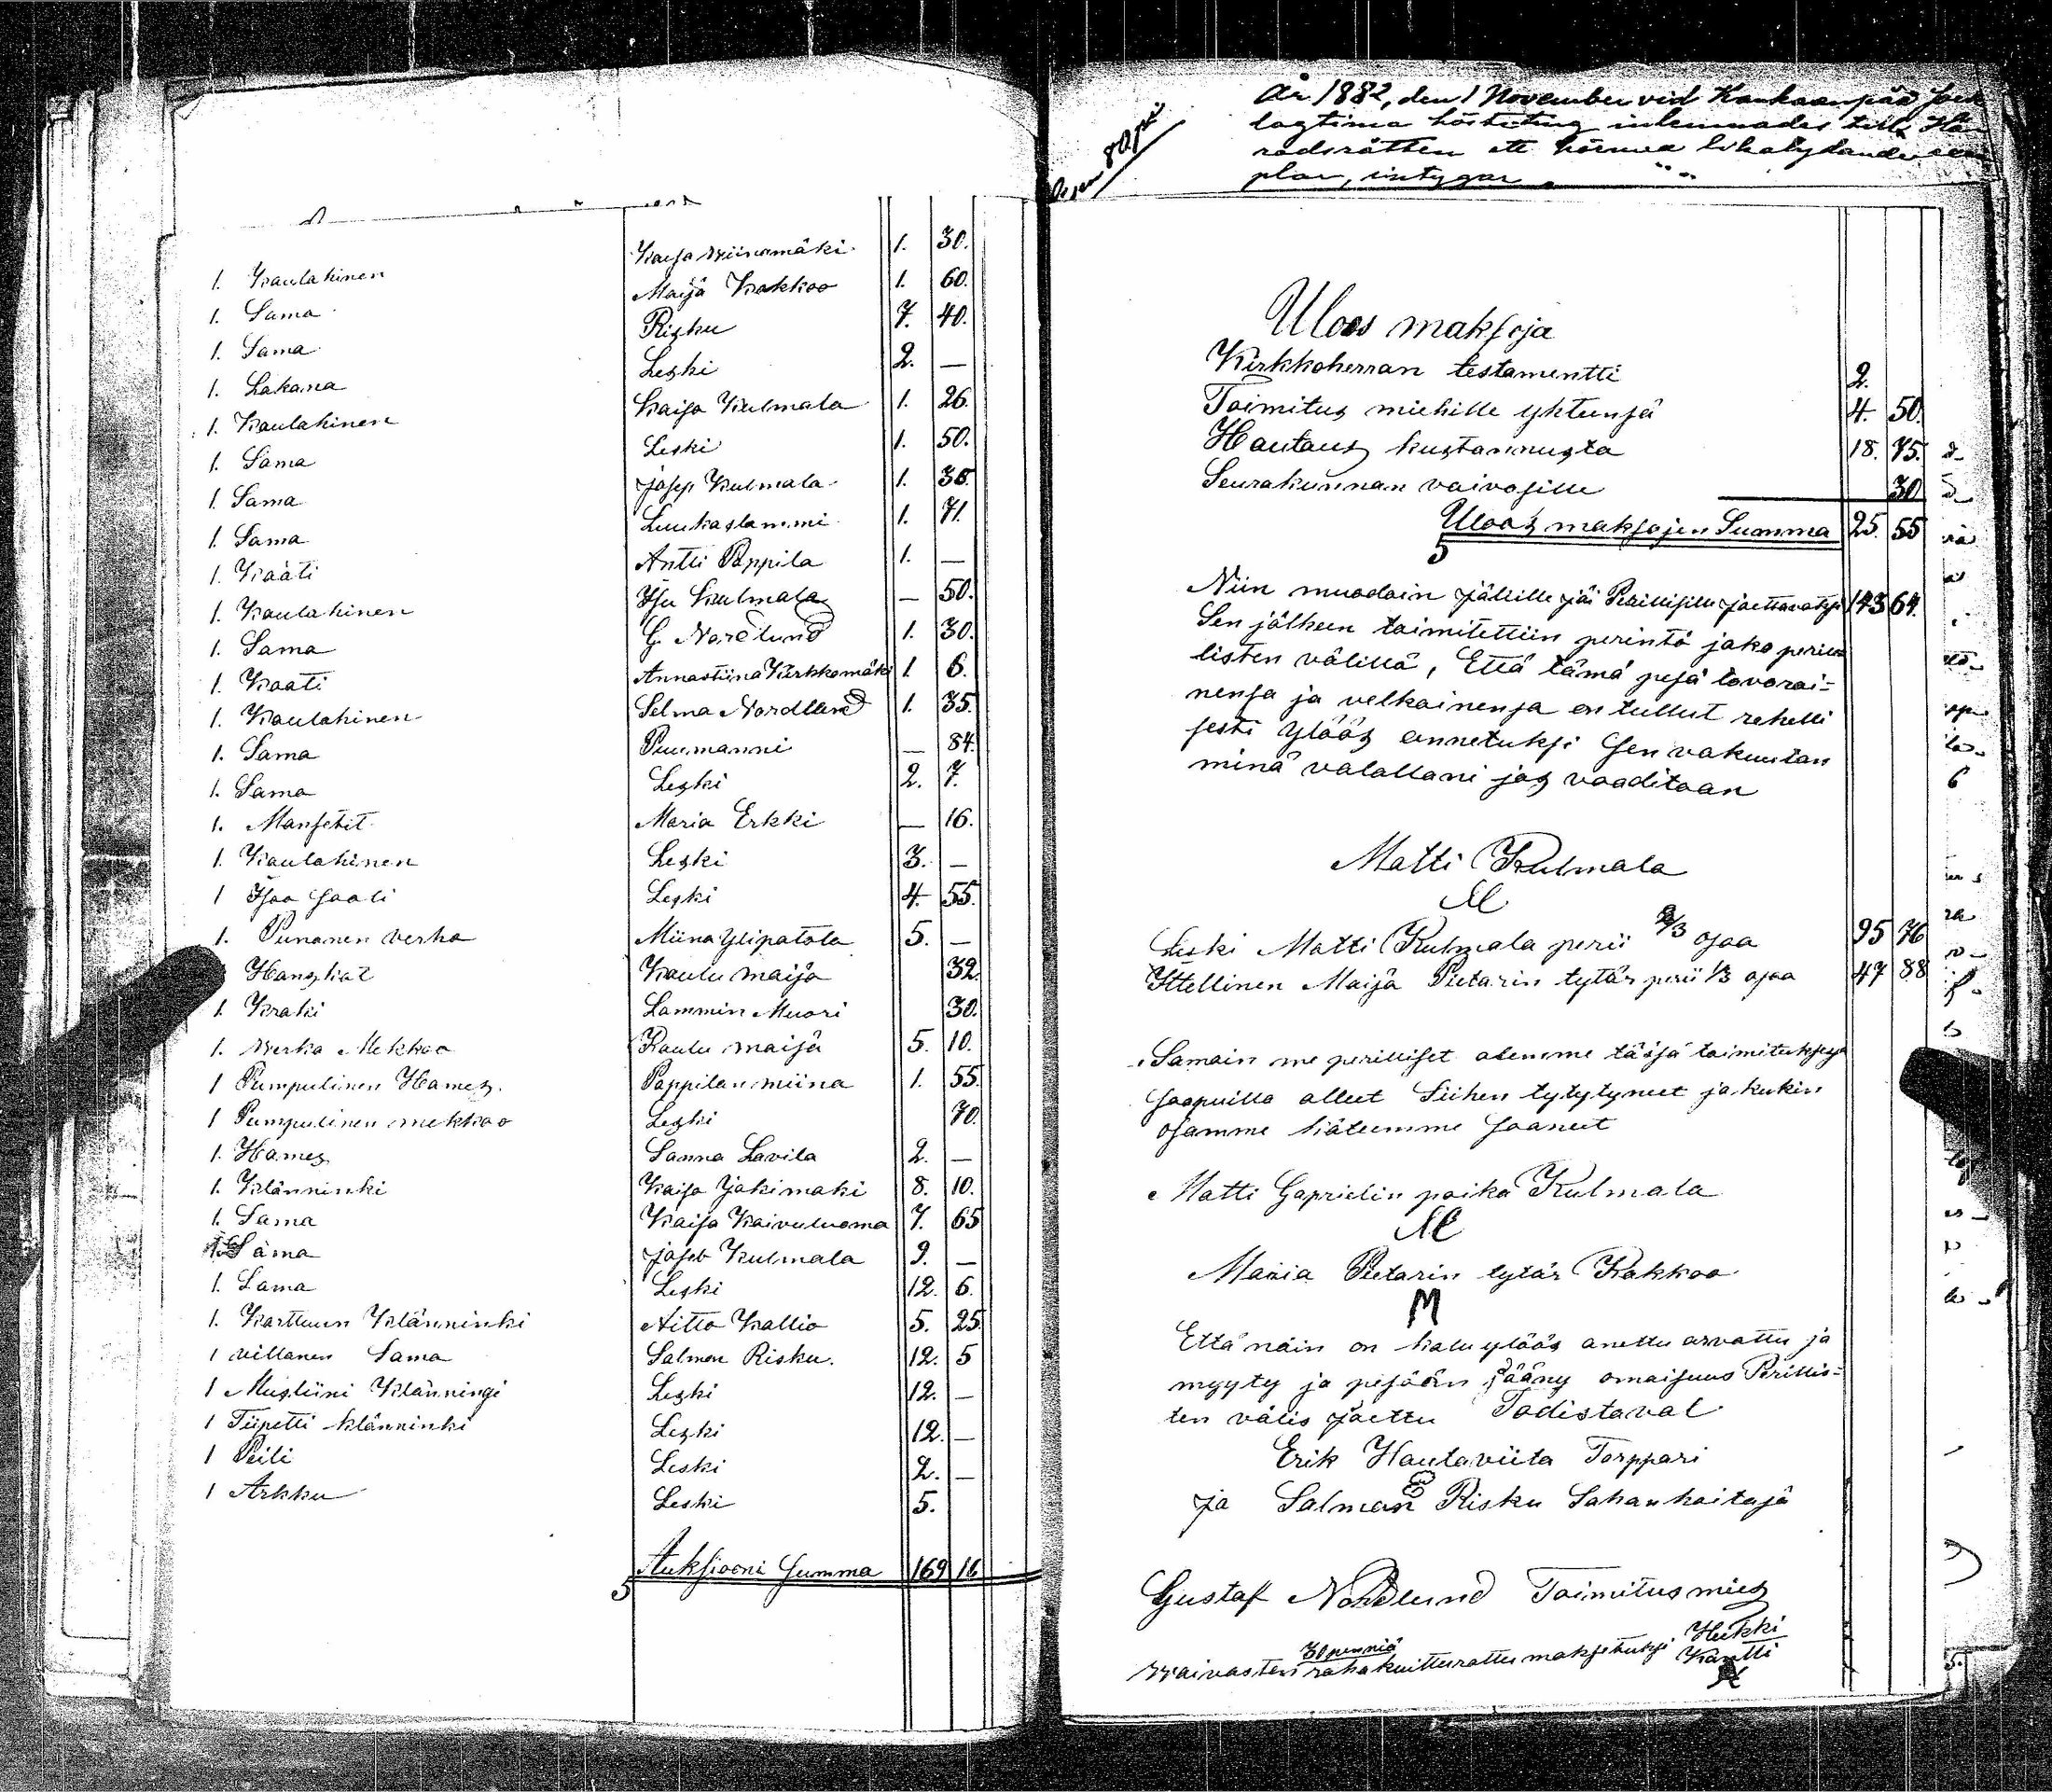 1. Kaulahinen Kaisa Wiinamäki 1. 30.
1. Sama Maijä Kakkoo 1. 60.
1. Sama Risku 7. 40.
1. Lakana Leski 2. —
1. Kaulahinen Kaisa Kulmala 1. 26.
1. Sama Leski 1. 50.
1. Sama Josep Kulmala 1. 36.
1. Sama Luukaslammi 1. 71.
1. Kaati Antti Pappila 1. —
1. Kaulahinen Isu Kulmala — 50.
1. Sama G. Nordlund 1. 30.
1. Kaati Annastiina Kirkkomäki 1 6.
1. Kaulahinen Selma Nordlund 1. 35.
1. Sama Puumanni — 84.
1. Sama Leski 2. 7.
1. Mansetit Maria Erkki — 16.
1. Kaulahinen Leski 3. —
1 Isoo saali Leski 4. 55.
1. Punanen verka Miina Ylipatola 5. —
Hanskat Kaulu maija 32.
1. Kraki Lammin Muori 30.
1. Werka Mekkoo Kaulu maijä 5. 10.
1 Pumpulinen Hames. Pappilan miina 1. 55.
1 Pumpulinen mekkoo Leski 70.
1. Hames Sanna Lavila 2. —
1. Klänninki Kaisa Jakimaki 8. 10.
1. Sama Kaisa Kaivuluoma 7. 65
Sama Joseb Kulmala 9. —
1. Sama Leski 12. 6.
1. Karttuun Klänninki Aitto Kallio 5. 25
1 villanen Sama Salmon Risku. 12. 5
1 Musliini Klänningi Leski 12. —
1 Tiipetti klänninki Leski 12. —
1 Peili Leski 2. —
1 Arkku Leski 5.
Auksiooni summa 169 16
År 1882, den 1 November vid Kankaanpää
lagtima höstting inlemnades till Hä-
radsrätten ett härmed likalydande exem
plar, intygar
Uloos maksoja
Kirkkoherran testamentti 2.
Toimitus miehille yhteensä 4. 50.
Hautaus kustannusta 18. 75.
Seurakunnan vaivasille 30
Uloos maksojen Summa 25. 55
Niin muodoin jälille jäi Perillisille jaettavaksi 143 64.
Sen jälkeen toimitettiin perintö jako peril
listen välillä, Että tämä pesä tavarai-
nensa ja velkainensa on tullut rehelli
sesti ylöös annetuksi sen vakuutan
minä valallani jos vaaditaan
Matti Kulmala
Leski Matti Kulmala perii 2/3 osaa 95 76
Ittellinen Maijä Pietarin tytär perii 1/3 osaa 47 88
Samain me perilliset olemme tässä toimituksesa
saapuilla olleet Siihen tytytyneet ja kukin
osamme käteemme saaneet
Matti Gaprielin poika Kulmala
Maria Pietarin tytär Kakkoo
M
Että näin on kalu ylöös anettu arvattu ja
myyty ja pesään jääny omaisuus Perillis-
ten välis jaettu Todistavat
Erik Hautaviita Torppari
ja Salman Risku Sahanhoitaja
Gustaf Nordlund Toimitus mies
30 penniä Heikki
Waivasten raha kuitterattu maksetuksi Kantti